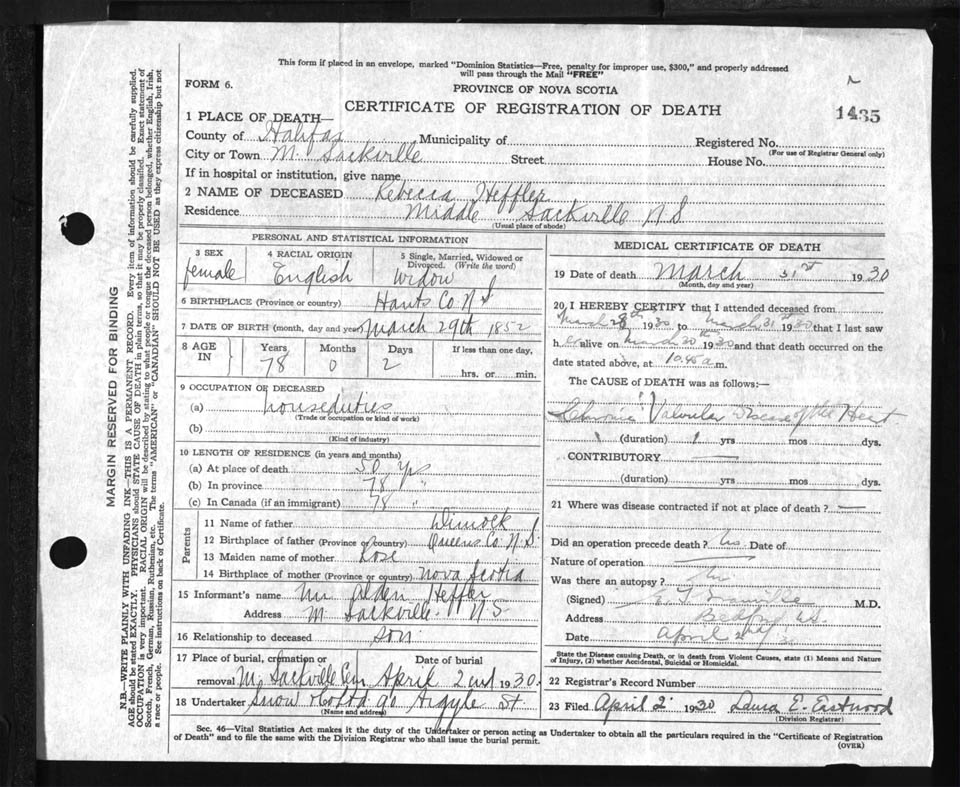 This form if placed in an envelope, marked "Dominion Statistics—Free, penalty for improper use, $300," and properly addressed
will pass through the Mail "FREE"
FORM 6.
PROVINCE OF NOVA SCOTIA
CERTIFICATE OF REGISTRATION OF DEATH
1435
1 PLACE OF DEATH—
County of Halifax Municipality of Registered No.
(For use of Registrar General only)
City or Town M. Sackville Street House No.
If in hospital or institution, give name
2 NAME OF DECEASED Rebecca Heffler
Residence Middle Sackville N S
(Usual place of abode)
PERSONAL AND STATISTICAL INFORMATION
3 SEX female
4 RACIAL ORIGIN English
5 Single, Married, Widowed or Divorced. (Write the word) Widow
6 BIRTHPLACE (Province or country) Hants Co N S
7 DATE OF BIRTH (month, day and year) March 29th 1852
8 AGE IN Years 78 Months 0 Days 2 If less than one day, hrs. or min.
9 OCCUPATION OF DECEASED
(a) houseduties
(Trade or occupation or kind of work)
(b)
(Kind of industry)
10 LENGTH OF RESIDENCE (in years and months)
(a) At place of death 50 yrs
(b) In province 78 "
(c) In Canada (if an immigrant) 78 "
Parents
11 Name of father Dimock
12 Birthplace of father (Province or country) Queens Co. N.S.
13 Maiden name of mother Rose
14 Birthplace of mother (Province or country) Nova Scotia
15 Informant's name Mr Alden Heffler
Address M. Sackville. N S.
16 Relationship to deceased son
17 Place of burial, cremation or removal M. Sackville Cem Date of burial April 2nd 1930
18 Undertaker Snow & Co Ltd 90 Argyle St.
(Name and address)
MEDICAL CERTIFICATE OF DEATH
19 Date of death March 31st 1930
(Month, day and year)
20 I HEREBY CERTIFY that I attended deceased from
March 28th 1930 to March 31st 1930 that I last saw
h er alive on March 30th 1930 and that death occurred on the
date stated above, at 10.45 a m.
The CAUSE of DEATH was as follows:—
Chronic Valvular Disease of the Heart
(duration) yrs mos dys.
CONTRIBUTORY —
(duration) yrs mos dys.
21 Where was disease contracted if not at place of death? —
Did an operation precede death? No Date of
Nature of operation —
Was there an autopsy? No
(Signed) M.D.
Address Bedford N.S.
Date April 2nd
State the Disease causing Death, or in death from Violent Causes, state (1) Means and Nature
of Injury, (2) whether Accidental, Suicidal or Homicidal.
22 Registrar's Record Number
23 Filed April 2 1930 Laura E. Eastwood
(Division Registrar)
Sec. 46—Vital Statistics Act makes it the duty of the Undertaker or person acting as Undertaker to obtain all the particulars required in the "Certificate of Registration
of Death" and to file the same with the Division Registrar who shall issue the burial permit.
(OVER)
MARGIN RESERVED FOR BINDING
N.B.—WRITE PLAINLY WITH UNFADING INK—THIS IS A PERMANENT RECORD. Every item of information should be carefully supplied.
AGE should be stated EXACTLY. PHYSICIANS should STATE CAUSE OF DEATH in plain terms, so that it may be properly classified. Exact statement of
OCCUPATION is very important. RACIAL ORIGIN will be described by stating to what people or tongue the deceased person belonged, whether English, Irish,
Scotch, French, German, Russian, Ruthenian, etc. The terms "AMERICAN" or "CANADIAN" SHOULD NOT BE USED as they express citizenship but not
a race or people. See instructions on back of Certificate.